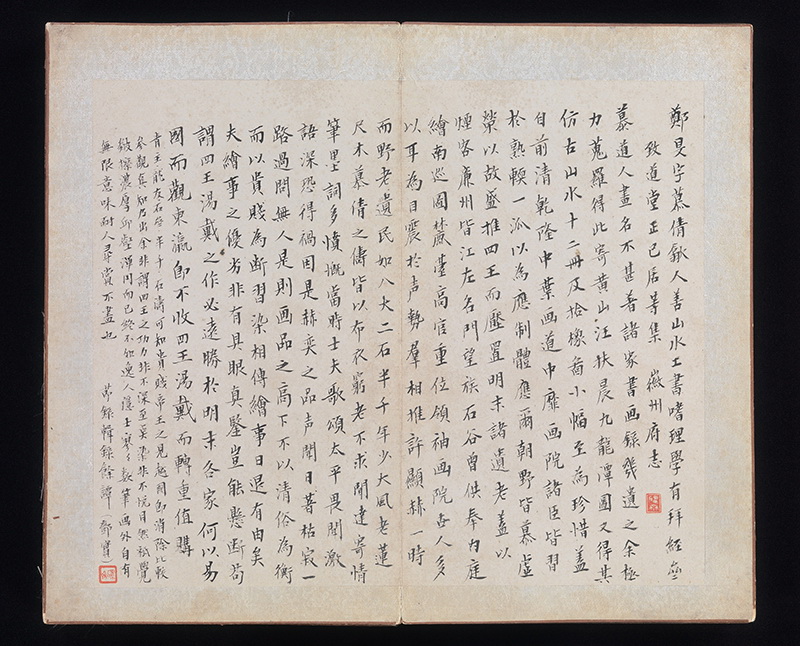 鄭旻字慕倩歙人善山水工書嗜理學有拜經齋
致道堂正己居等集 徽州府志
慕道人畫名不甚著諸家書画錄幾遺之余極
力蒐羅得此寄黃山江扶晨九龍潭圖又得其
仿古山水十二冊及拾橡畨小幅至為珍惜蓋
自前清乾隆中葉画道中靡画院諸臣皆習
於熟輭一派以為應制體應爾朝野皆慕虛
榮以故盛推四王而壓置明末諸遺老蓋以
煙客廉州皆江左名門望族石谷曾供奉内庭
繪南巡圖麓臺高官重位領袖画院世人多
以耳為目震於声勢羣相推許顯赫一時
而野老遺民如八大二石半千年少大風老蓮
尺木慕倩之儔皆以布衣窮老不求聞達寄情
筆墨詞多憤慨當時士夫歌頌太平畏聞激
語深恐得禍因是赫奕之品声聞日著枯寂一
路過問無人是則画品之高下不以清俗為衡
而以貴賤為斷習染相傳繪事日退有由矣
夫繪事之優劣非有具眼真鑒豈能懸斷苟
謂四王湯戴之作必遠勝於明末各家何以易
國而觀東瀛即不收四王湯戴而轉重值購
青主龍友石谿半千石濤可知貴賤帝王之見越國即消除比較
參觀真知乃出余非謂四王之功力非不深至莫染非不悦目然秪覺
緻深濃厚邱壑渾同而已終不如逸人隱士寥寥數筆画外自有
無限意味耐人尋賞不盡也 節錄輯錄餘譚 鄧實